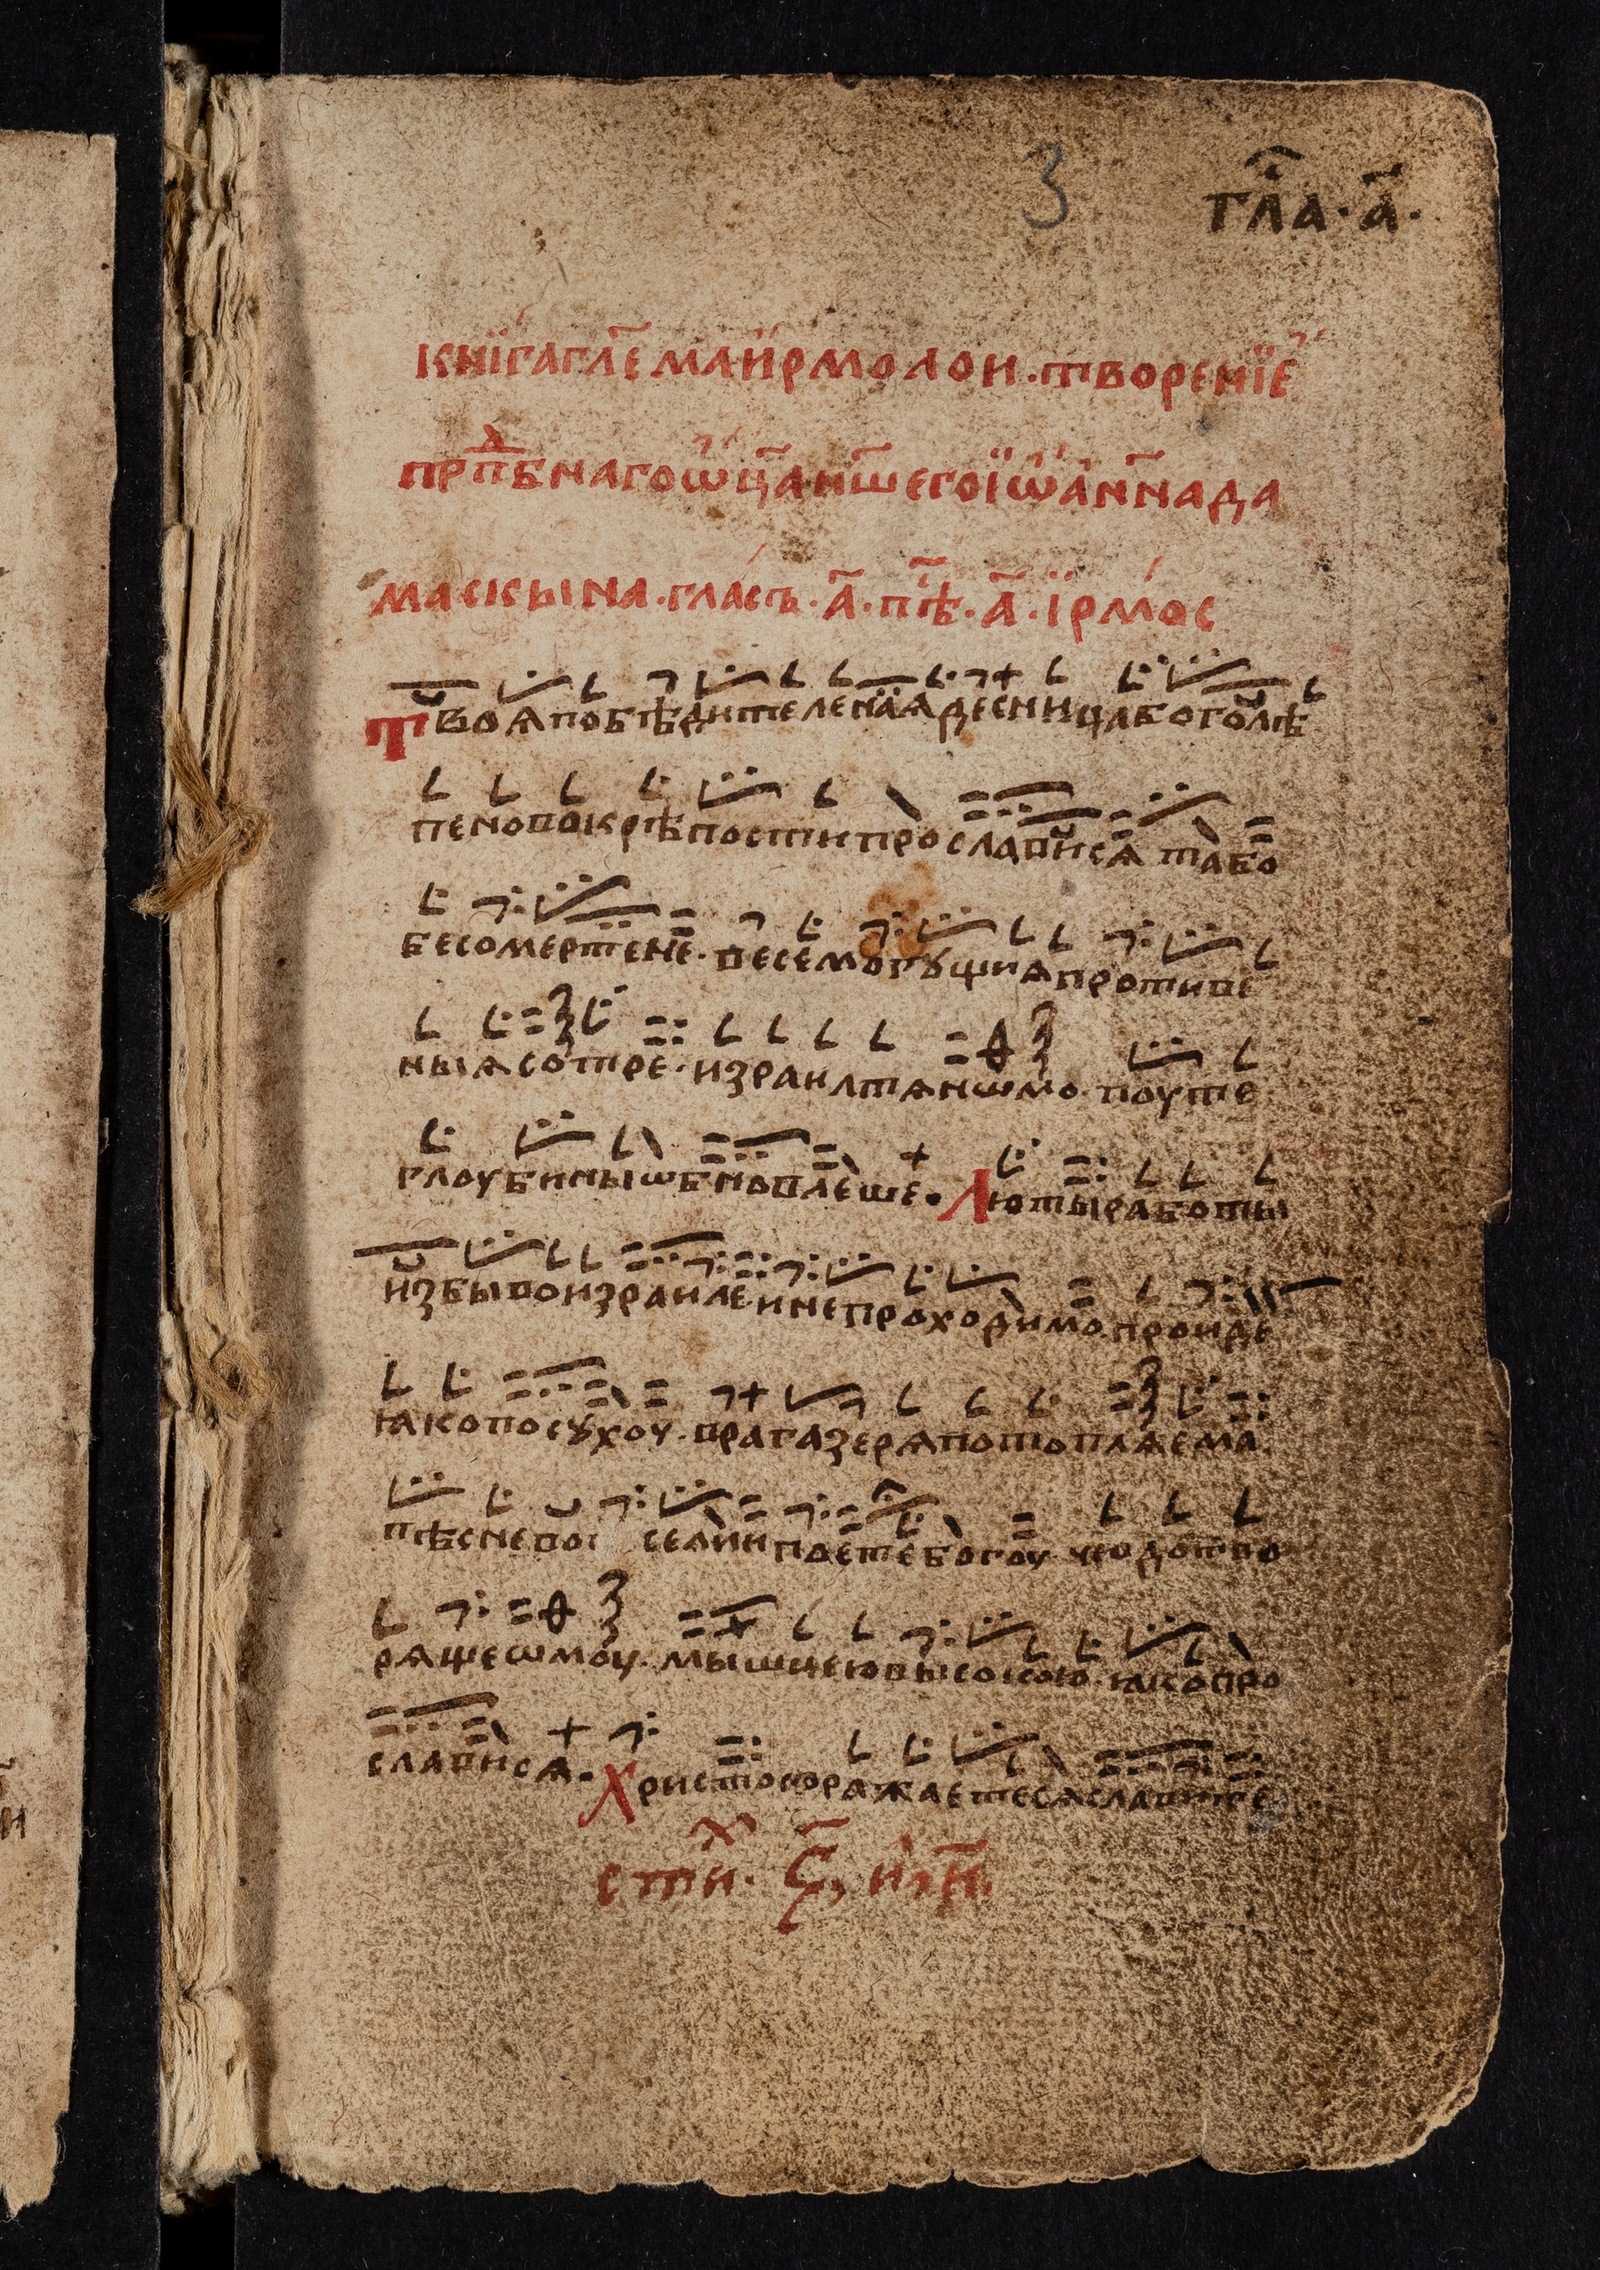 3
гл҃а · а҃ ·
кнїгаглⷢ҇емаꙗи҆рмолои · творенїе
прпⷣбнагоѡц҃ан҃шегоїѡа҆н҃нада
маскына · гласъ · а҃ · пѣ҃ · а҃ · їрмос
твоѧпобѣдителенаꙗ̈десницабоголѣ
пеновокрѣпостипрослависѧ табо
бесомертене · весемогꙋщиѧпротиве
ныѧсотре · израилтѧнѡмо · поуте
глоубиныѡбновлеше · Лютыработы
избывоизраиле · инепроходимо · проиде
ꙗкопосꙋхоу · врагазерѧпотоплѧема
пѣсневої селиипоетебогоу · чюдотво
рѧщеѡмоу · мышцеювысокою · ꙗкопро
слависѧ · Христосоражаетесѧславите ·
стиⷯ · и҃ ·